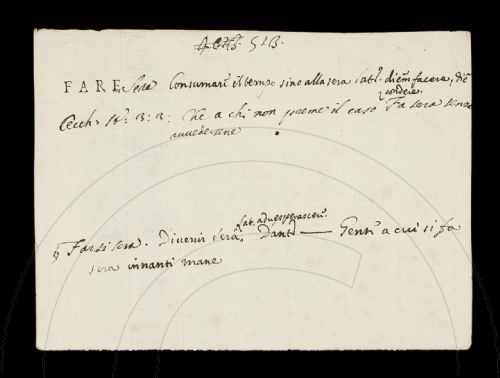 513.
FARE sera Consumare il tempo sino alla sera Lat. diem facere, diē
condere.
Cecch. 3: 3: Che a chi non preme il caso Fa sera senza
avvedersene
Lat. advesperascere.
§ Farsi sera. Divenir sera. Dant. — Genti a cui si fa
sera innanti mane